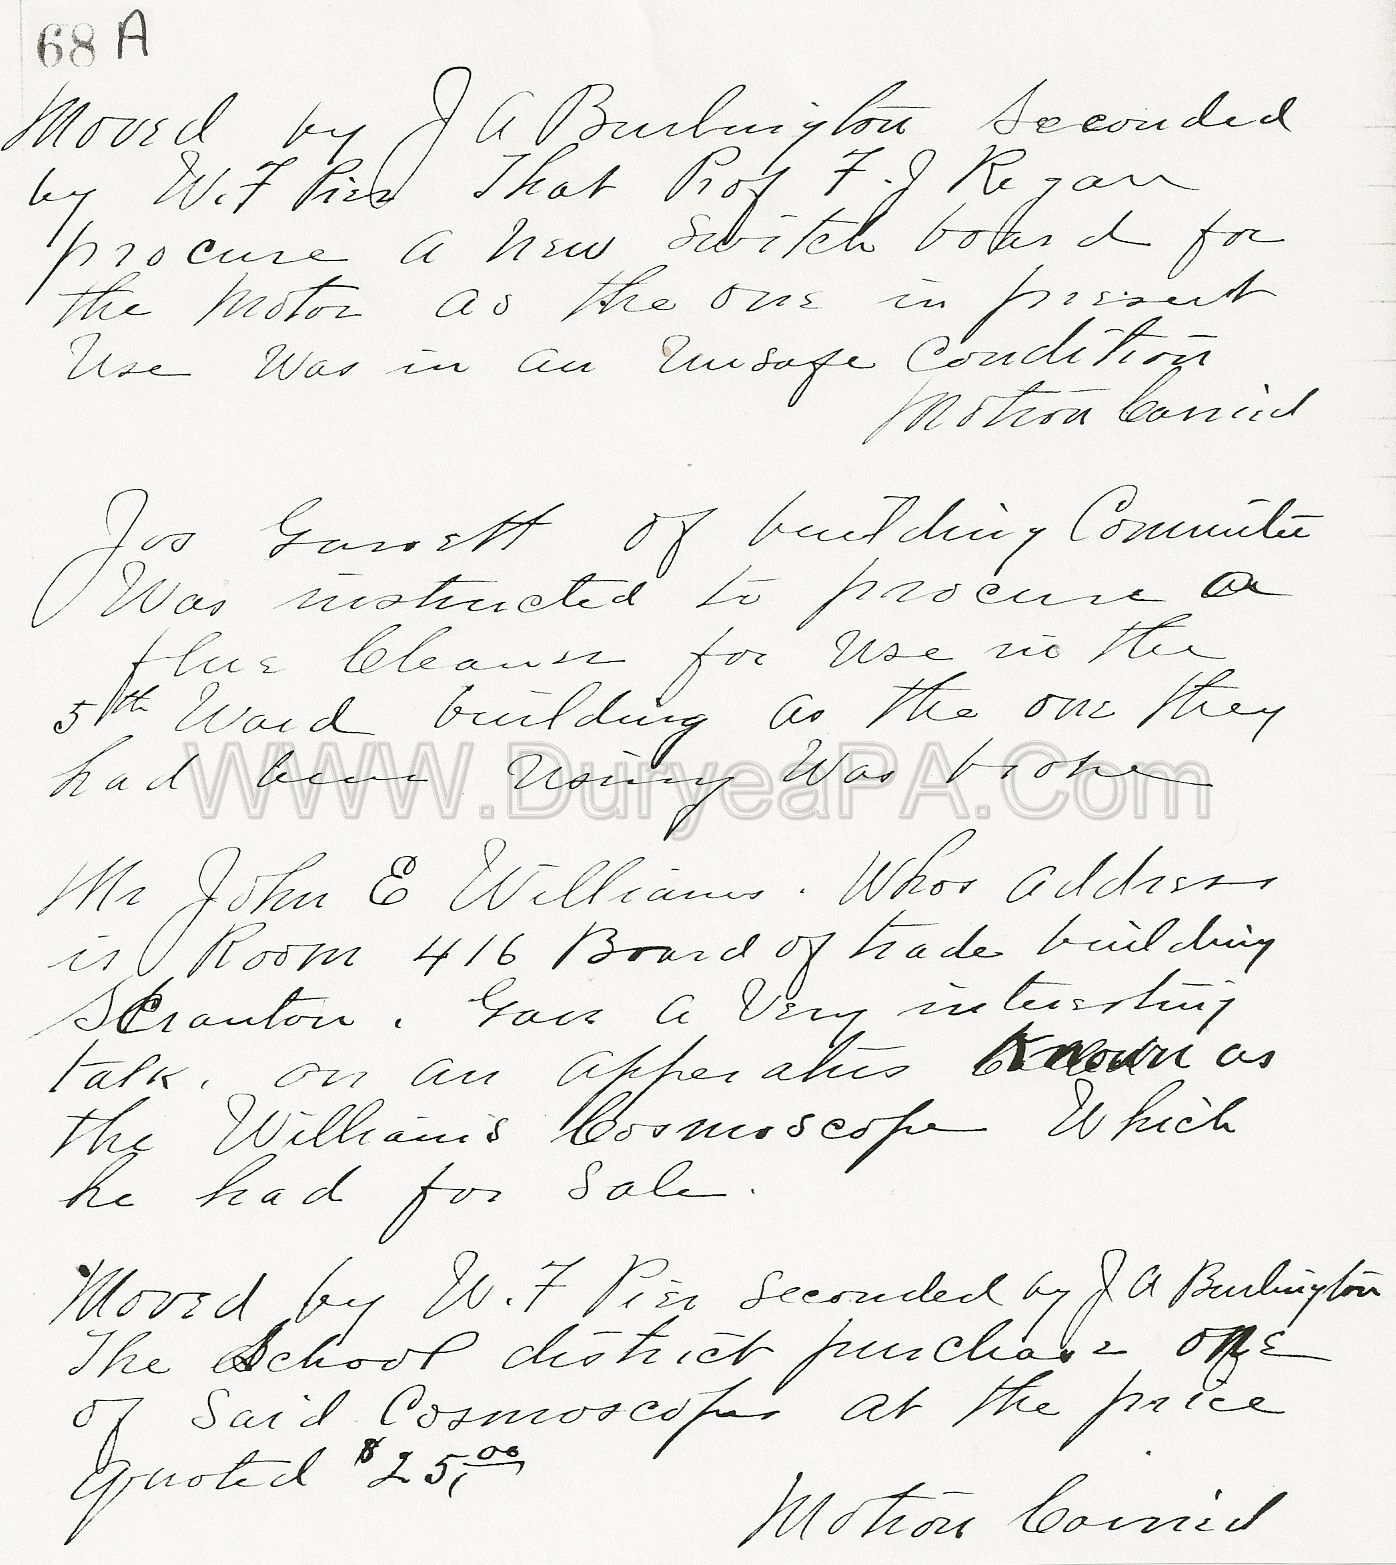 68 A
Moved by J A Burlington Seconded
by W. F Pier That Prof F. J Regan
procure a New Switch board for
the Motor as the one in present
Use Was in an Unsafe Condition
Motion Carried
Jos Garrett of building Committee
Was instructed to procure a
flue Cleaner for Use in the
5th Ward building as the one they
had been Using Was broke
WWW.DuryeaPA.Com
Mr John E Williams. Whos address
is Room 416 Board of trade building
SCranton. Gave a Very interesting
talk. on an apperatus Known as
the William's Cosmoscope Which
he had for Sale.
Moved by W. F Pier Seconded by J A Burlington
The School district purchase one
of Said Cosmoscopes at the price
quoted $25.00
Motion Carried